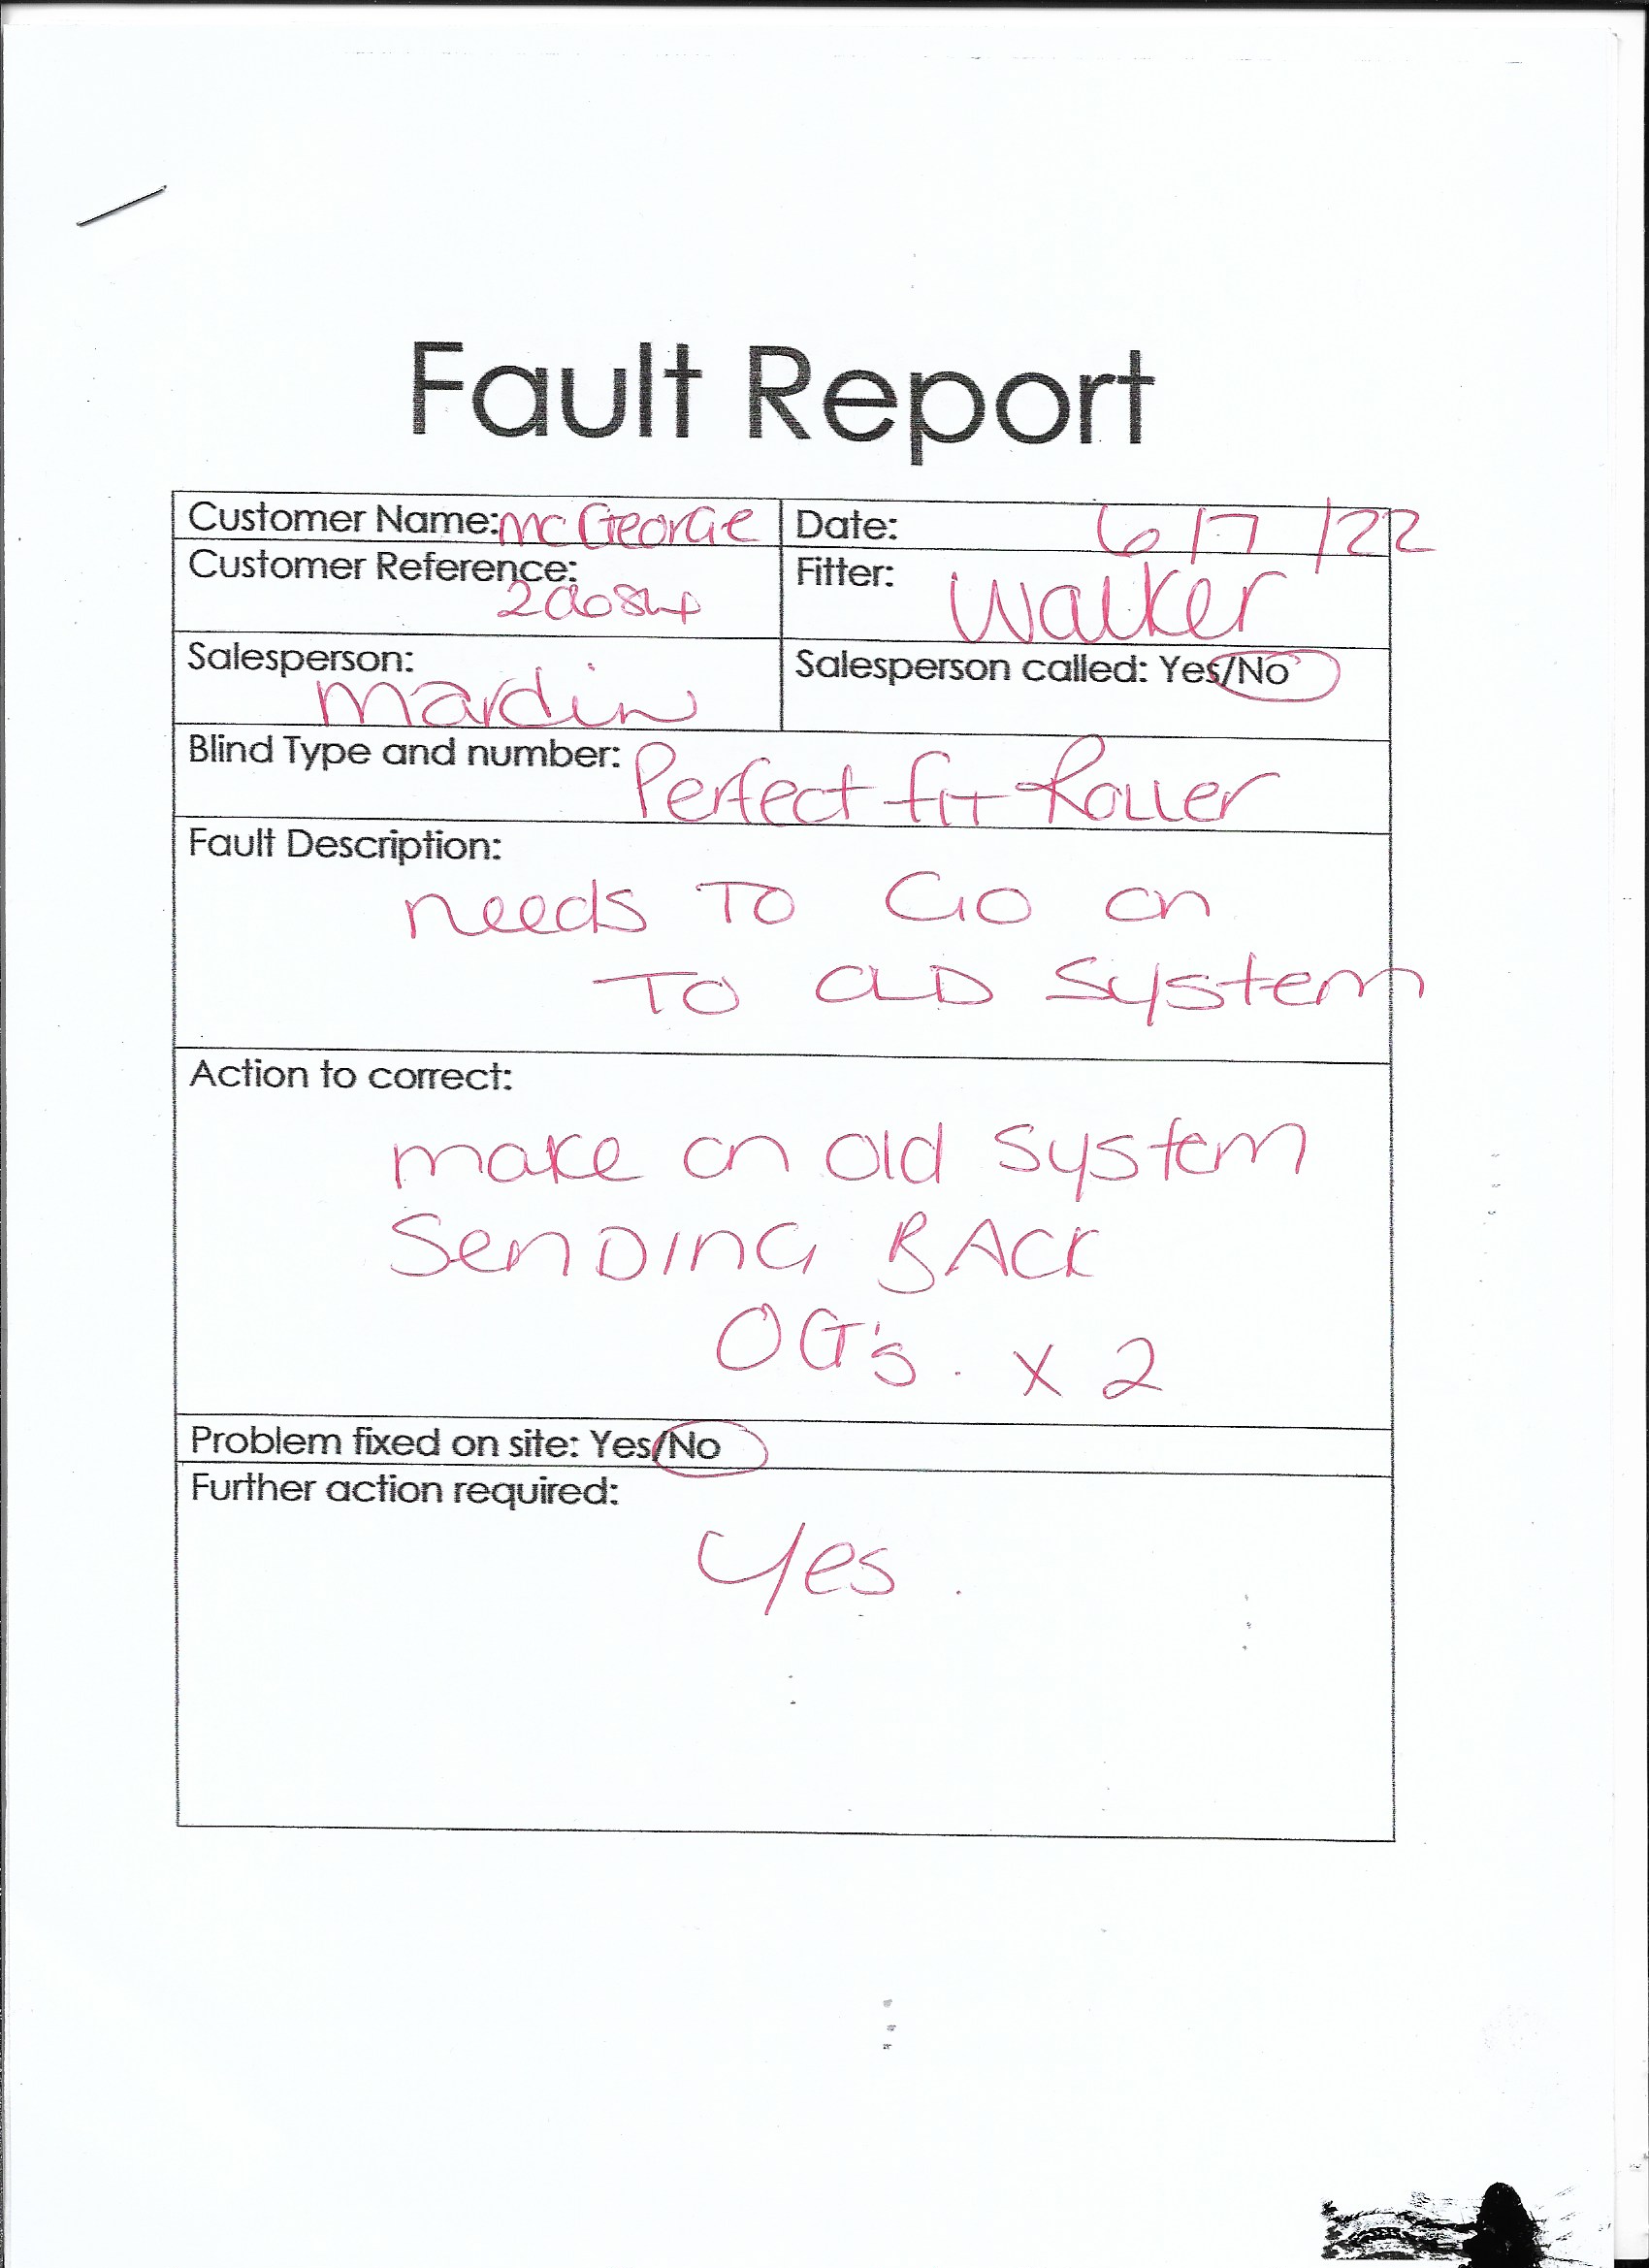 Fault Report
Customer Name: Mc George
Date: 6/7/22
Customer Reference:
Fitter: Walker
Salesperson: Mardin
Salesperson called: Yes/No
Blind Type and number: Perfect fit Roller
Fault Description:
needs To Go on
To OLD System
Action to correct:
make on old system
SenDInG BACK
OG's. x 2
Problem fixed on site: Yes/No
Further action required:
Yes.